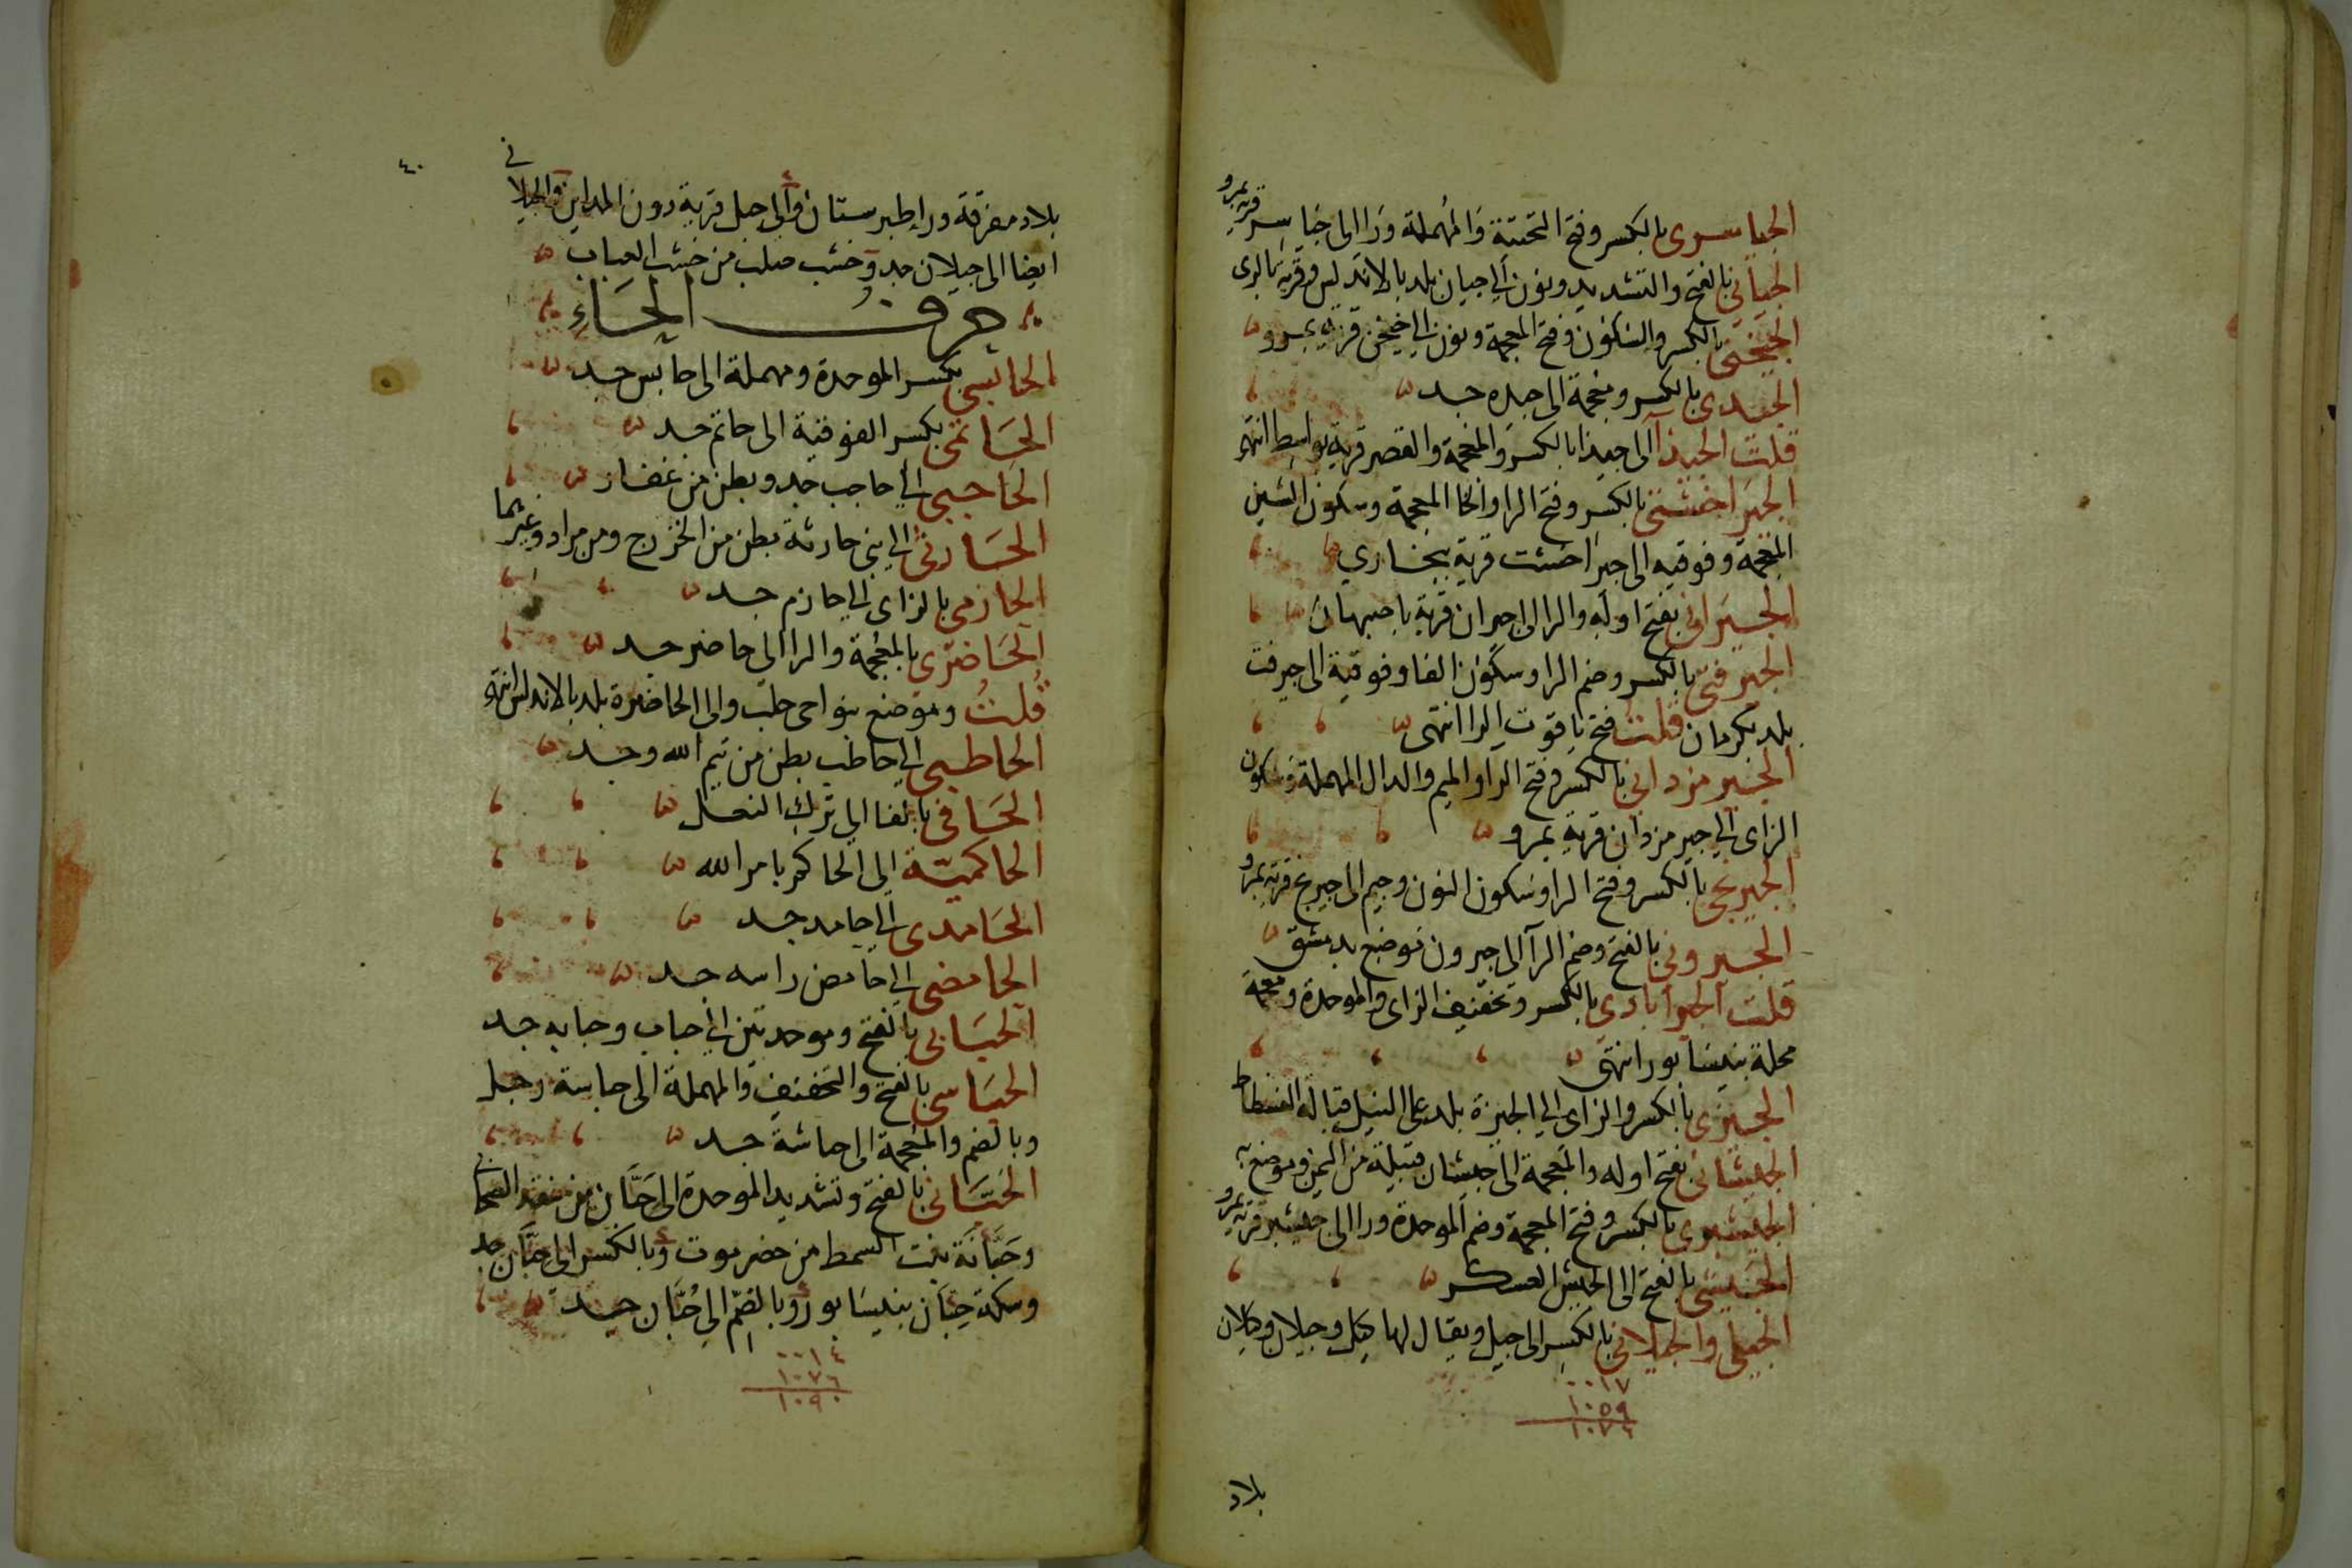 الجياسرى بالكسر وفتح التحتية والمهملة وراالى جياسر قرية بمرو
الجيانى بالفتح والتشديد ونون الى جيان بلد بالاندلس وقرية بالرى
الجيخنى بالكسر والسكون وفتح المعجمة ونون الى جيخن قرية بمرو
الجيدى بالكسر ومعجمة الى جيده جد
قلت الجيذا الى جيذا بالكسر والمعجمة والقصر قرية بواسط انتهى
الجيراخشتى بالكسر وفتح الرا والخا المعجمة وسكون الشين
المعجمة وفوقيه الى جيراخشت قرية ببخارى
الجيرانى بفتح اوله والرا الى جيران قرية باصبهان
الجيرفتى بالكسر وضم الرا وسكون الفا وفوقية الى جيرفت
بلد بكرمان قلت فتح ياقوت الرا انتهى
الجيرمزدانى بالكسر وفتح الرا والميم والدال المهملة وسكون
الزاى الى جيرمزدان قرية بمرو
الجيرنجى بالكسر وفتح الرا وسكون النون وجيم الى جيرنج قرية بمرو
الجيرونى بالفتح وضم الرآ الى جيرون موضع بدمشق
قلت الجيزاباذى بالكسر وتخفيف الزاى والموحدة ومعجمة
محلة بنيسابور انتهى
الجيزى بالكسر والزاى الى الجيزة بلد على النيل قبالة الفسطاط
الجيشانى بفتح اوله والمعجمة الى جيشان قبيلة من اليمن وموضع به
الجيشبرى بالكسر وفتح المعجمة وضم الموحدة ورا الى جيشبر قرية بمرو
الجيشى بالفتح الى الجيش العسكر
الجيلى والجيلانى بالكسر الى جيل ويقال لها كيل وجيلان وكيلان
٠٠١٧
١٠٥٩
١٠٧٦
بلاد
٤٠
بلاد مفرقة ورا طبرستان والى جيل قرية دون المداين والجيلانى
ايضا الى جيلان جد وخشب صلب من خشب العناب
حرف الحاء
الحابسى بكسر الموحدة ومهملة الى حابس جد
الحاتمى بكسر الفوقية الى حاتم جد
الحاجبى الى حاجب جد وبطن من غفار
الحارثى الى بنى حارثة بطن من الخزرج ومن مراد وغيرهما
الحازمى بالزاى الى حازم جد
الحاضرى بالمعجمة والرا الى حاضر جد
قلت وموضع بنواحى حلب والى الحاضرة بلد بالاندلس انتهى
الحاطبى الى حاطب بطن من تيم الله وجد
الحافى بالفا الى ترك النعل
الحاكمية الى الحاكم بامر الله
الحامدى الى حامد جد
الحامضى الى حامض راسه جد
الحبابى بالفتح وموحدتين الى حباب وحبابه جد
الحباسى بالفتح والتخفيف والمهملة الى حباسة رجل
وبالضم والمعجمة الى حباشة جد
الحبانى بالفتح وتشديد الموحدة الى حبان بن منقذ الصحابى
وحبانة بنت السمط من حضرموت وبالكسر الى حبان جد
وسكة حبان بنيسابور وبالضم الى حبان جد
٠٠١٤
١٠٧٦
١٠٩٠